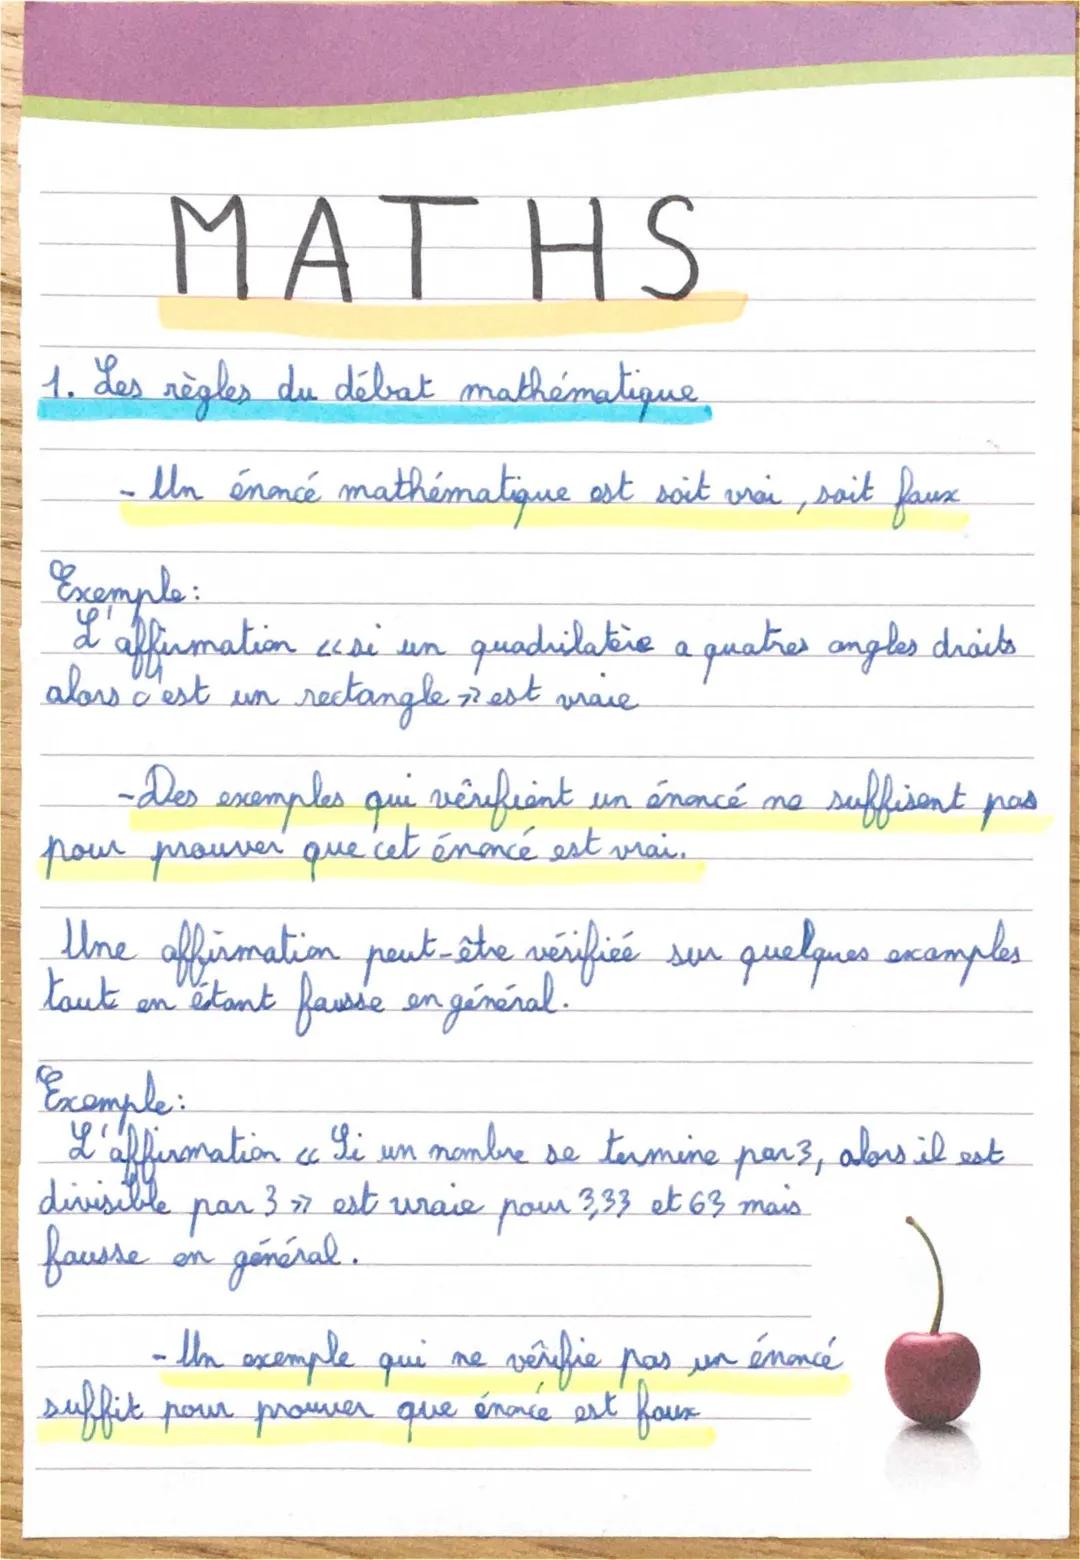 MATHS
1. Les règles du débat mathématique
- Un énoncé mathématique est soit vrai, soit faux
Exemple:
L'affirmation «si un quadrilatère a quatres angles droits
alors c'est un rectangle» est vraie
- Des exemples qui vérifient un énoncé ne suffisent pas
pour prouver que cet énoncé est vrai.
Une affirmation peut-être vérifiée sur quelques examples
tout en étant fausse en général.
Exemple:
L'affirmation « Si un nombre se termine par 3, alors il est
divisible par 3 » est vraie pour 3,33 et 63 mais
fausse en général.
- Un exemple qui ne vérifie pas un énoncé
suffit pour prouver que énoncé est faux